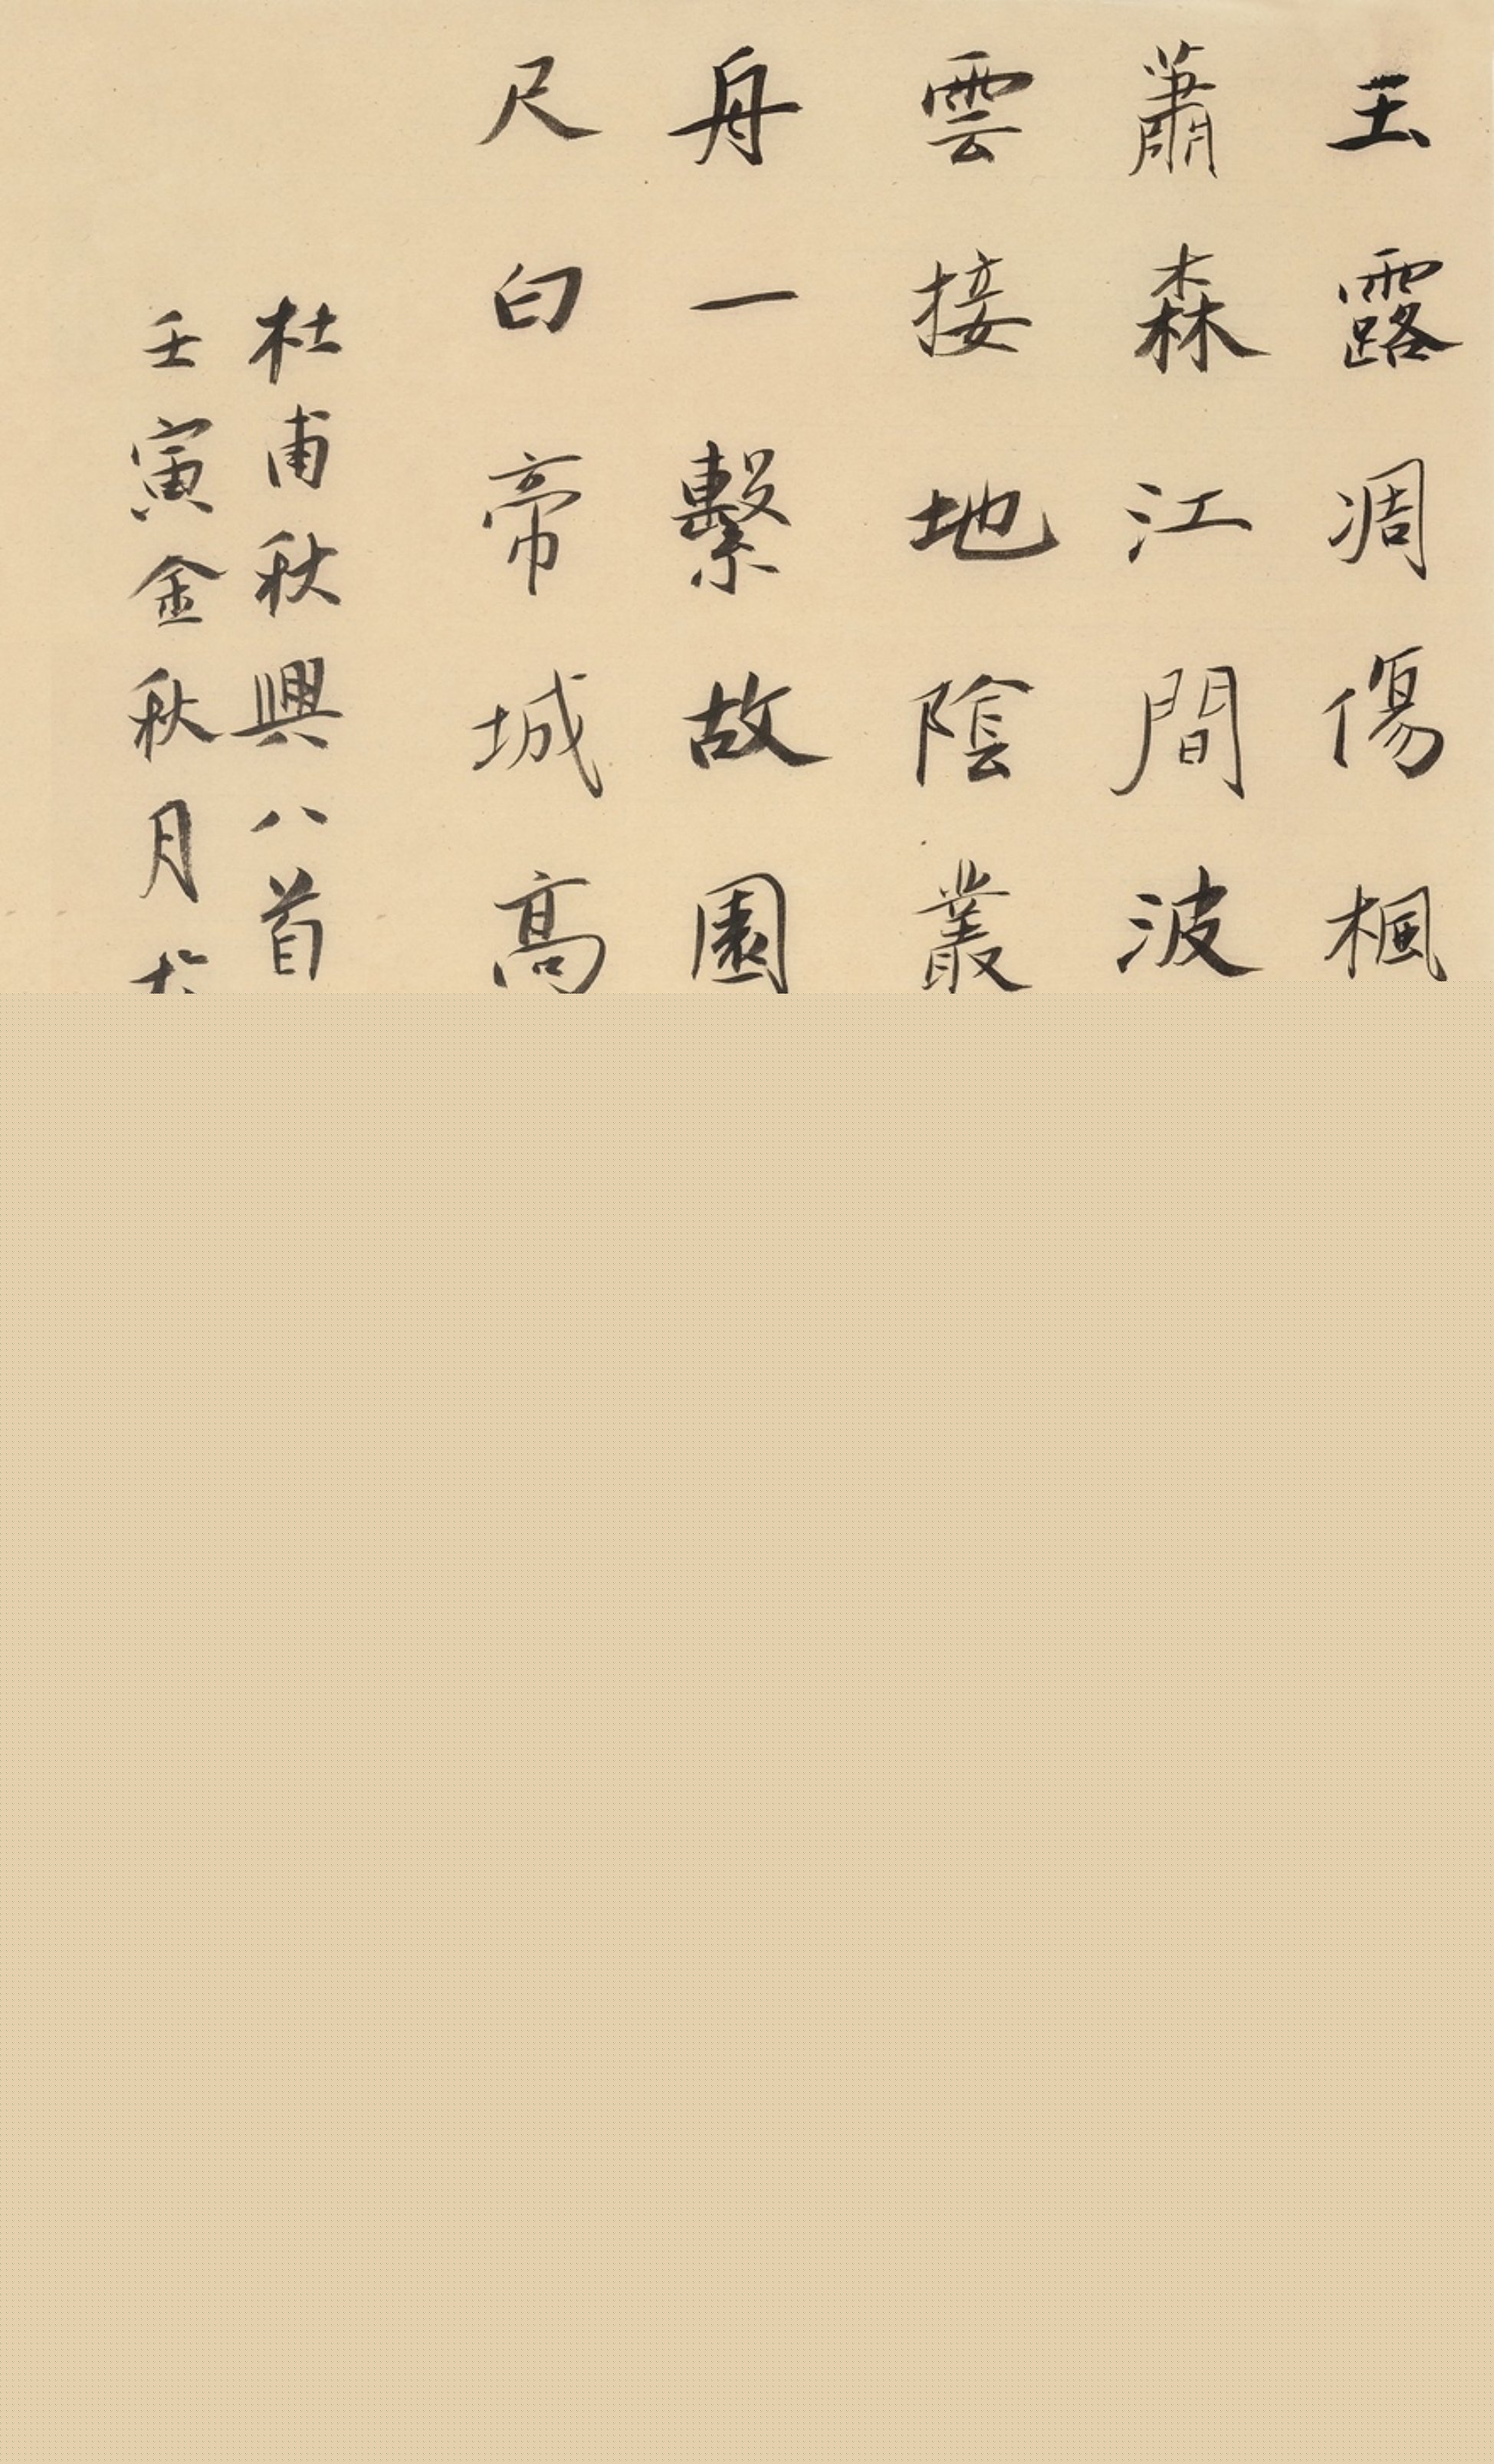 玉露凋傷楓
蕭森江間波
雲接地陰叢
舟一繫故園
尺白帝城高
杜甫秋興八首
壬寅金秋月於